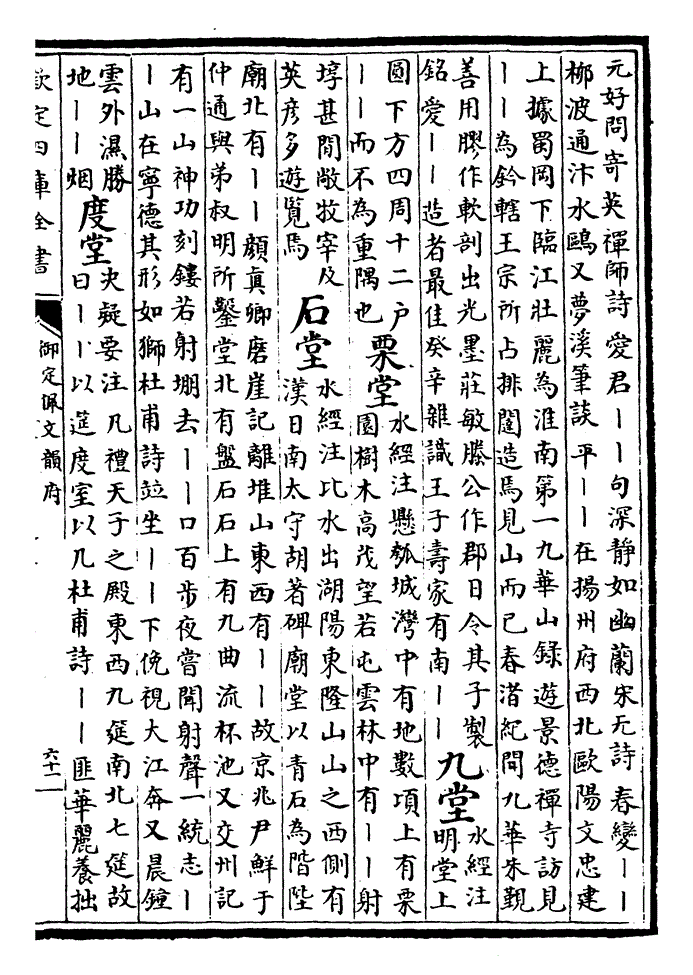 元好問寄英禪師詩愛君丨丨句深靜如幽蘭宋无詩春變丨丨
柳波通汴水鷗又夢溪筆談平丨丨在揚州府西北歐陽文忠建
上據蜀岡下臨江壯麗為淮南第一九華山錄遊景德禪寺訪見
丨丨為鈐轄王宗所占排闥造焉見山而已春渚紀聞九華朱覲
善用膠作軟劑出光墨莊敏滕公作郡日令其子製
銘愛丨丨造者最佳癸辛雜識王子壽家有南丨丨
九堂
水經注
明堂上
圓下方四周十二戶
丨丨而不為重隅也
栗堂
水經注懸瓠城灣中有地數項上有栗
園樹木高茂望若屯雲林中有丨丨射
埻甚閒敞牧宰及
英彥多遊覽焉
石堂
水經注比水出湖陽東隆山山之西側有
漢日南太守胡著碑廟堂以青石為階陛
廟北有丨丨顏真卿磨崖記離堆山東西有丨丨故京兆尹鮮于
仲通與弟叔明所鑿堂北有盤石石上有九曲流杯池又交州記
有一山神功刻鏤若射堋去丨丨口百步夜嘗聞射聲一統志丨
丨山在寧德其形如獅杜甫詩竝坐丨丨下俛視大江奔又晨鐘
雲外濕勝
地丨丨烟
度堂
夬疑要注凡禮天子之殿東西九筵南北七筵故
曰丨丨以筵度室以几杜甫詩丨丨匪華麗養拙
欽定四庫全書
御定佩文韻府
六十二